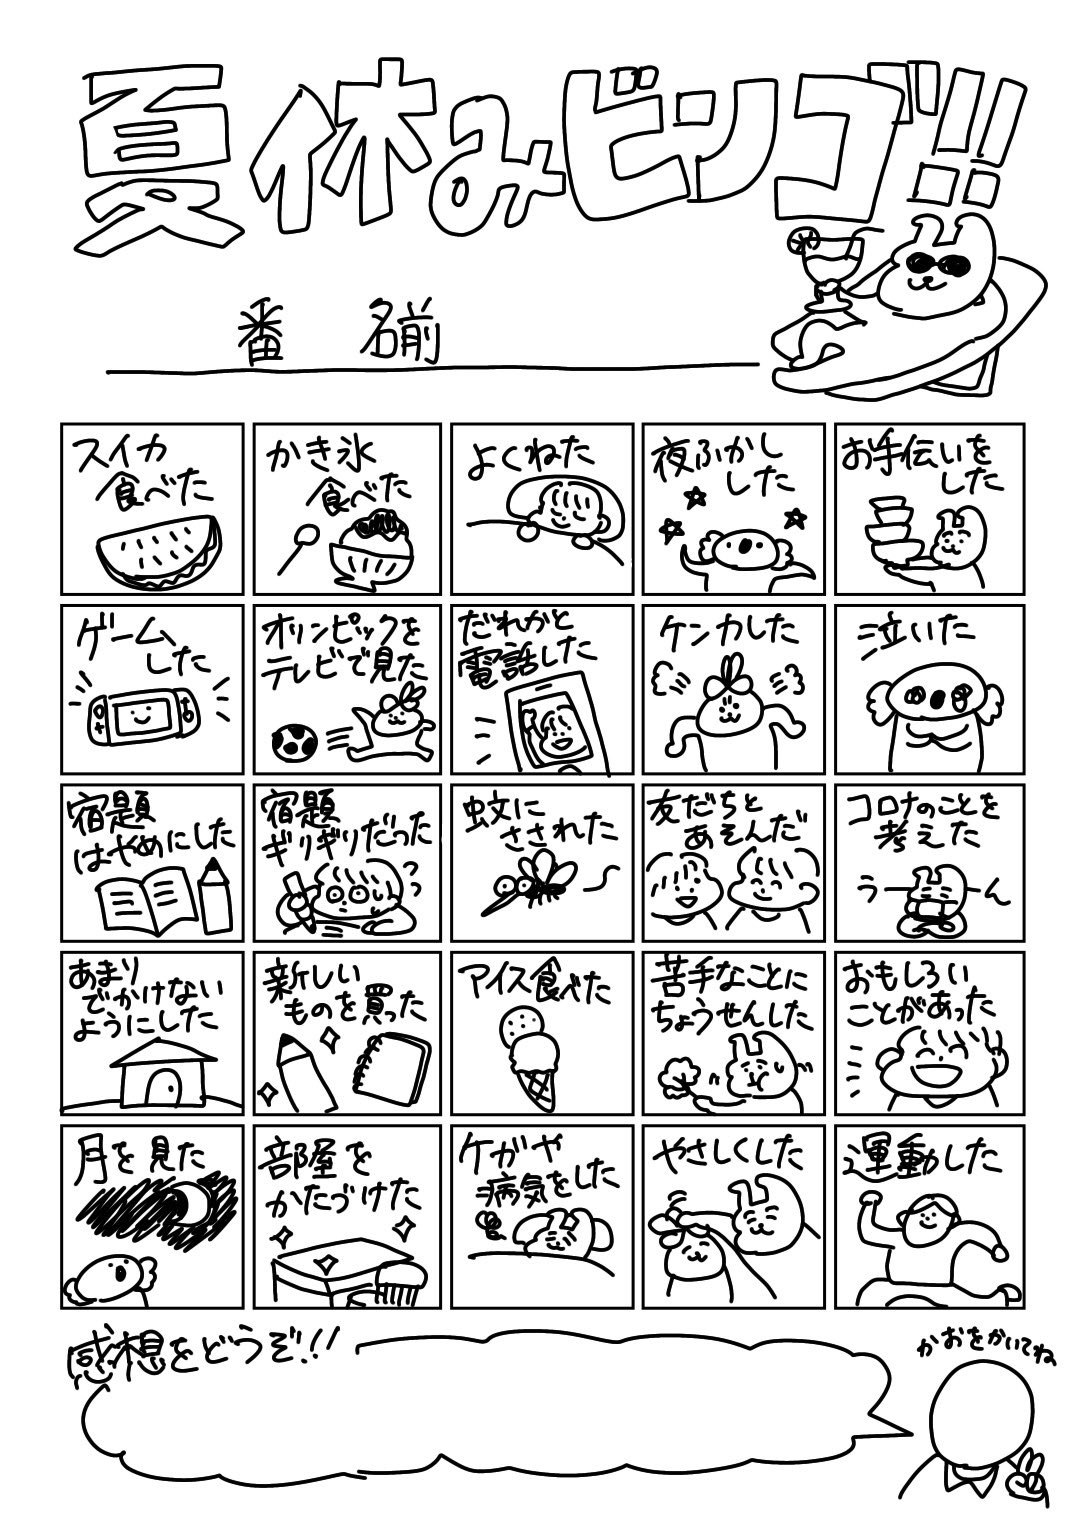 夏休みビンゴ!!
番 名前
スイカ
食べた
かき氷
食べた
よくねた
夜ふかし
した
お手伝いを
した
ゲーム
した
オリンピックを
テレビで見た
だれかと
電話した
ケンカした
泣いた
宿題
はやめにした
宿題
ギリギリだった
蚊に
さされた
友だちと
あそんだ
コロナのことを
考えた
うーん
あまり
でかけない
ようにした
新しい
ものを買った
アイス食べた
苦手なことに
ちょうせんした
おもしろい
ことがあった
月を見た
部屋を
かたづけた
ケガや
病気をした
やさしくした
運動した
感想をどうぞ!!
かおをかいてね